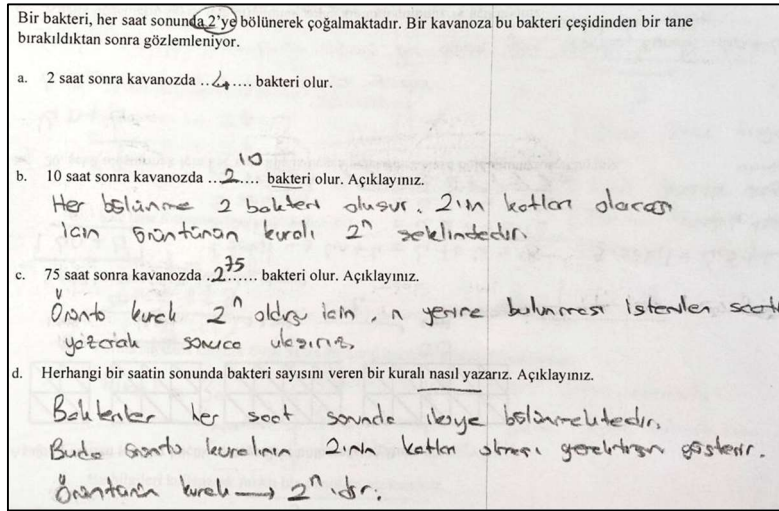 Bir bakteri, her saat sonunda 2'ye bölünerek çoğalmaktadır. Bir kavanoza bu bakteri çeşidinden bir tane
bırakıldıktan sonra gözlemleniyor.
a. 2 saat sonra kavanozda ..4.... bakteri olur.
b. 10 saat sonra kavanozda ...2¹⁰.... bakteri olur. Açıklayınız.
Her bölünme 2 bakteri oluşur. 2'nin katları olacağı
için örüntünün kuralı 2ⁿ şeklindedir.
c. 75 saat sonra kavanozda .2⁷⁵...... bakteri olur. Açıklayınız.
Örüntü kuralı 2ⁿ olduğu için, n yerine bulunması istenilen saati
yazarak sonuca ulaşırız.
d. Herhangi bir saatin sonunda bakteri sayısını veren bir kuralı nasıl yazarız. Açıklayınız.
Bakteriler her saat sonunda ikiye bölünmektedir.
Buda örüntü kuralının 2'nin katları olması gerektiğini gösterir.
Örüntünün kuralı → 2ⁿ'dir.